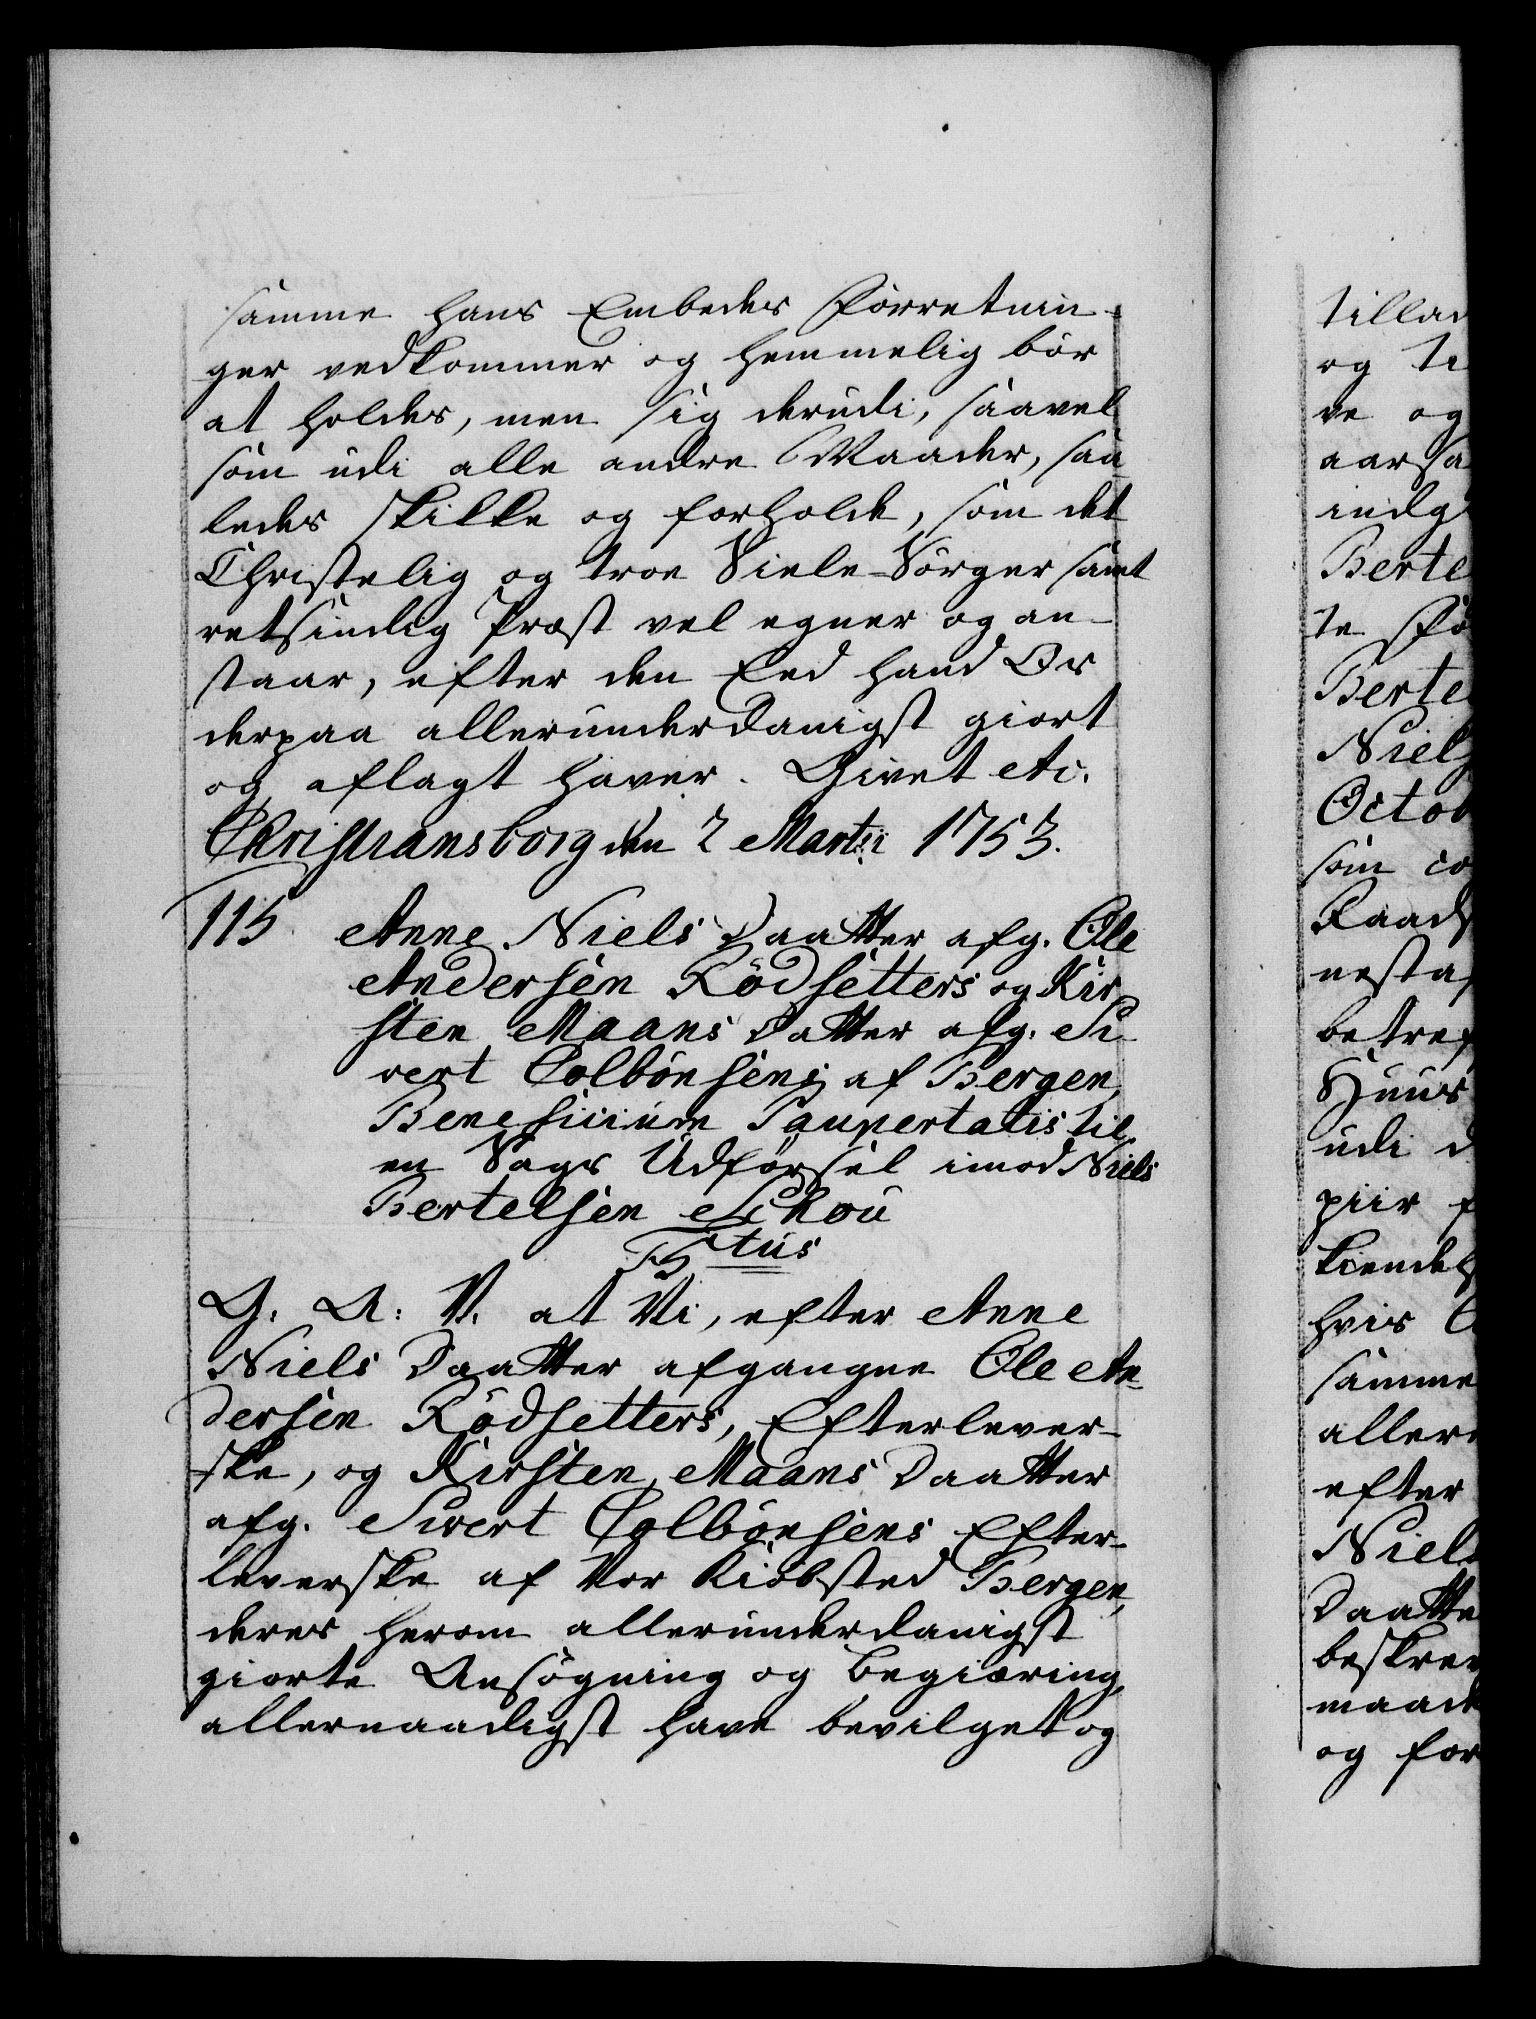 samme hans Embedes Forretnin-
ger vedkommer og hemmelig bör
at holdes, men sig derudi, saavel
som udi alle andre Maader, saa-
ledes skikke og forholde, som det
Christelig og troe Siele-Sörger samt
retsindig Præst vel egner og an-
staar, efter den Eed hand Os
derpaa allerunderdanigst giort
og aflagt haver. Givet etc.
Christiansborg den 2 Martii 1753.
115. Anne Niels Daatter afg. Ole
Andersen Rödsetters og Kir-
sten Maans Datter afg. Si-
vert Colbönsens af Bergen,
Beneficium Paupertatis til
en Sags Udförsel imod Niels
Bertelsen Schou
F5tus
G. A: V. at Vi, efter Anne
Niels Daatter afgangne Ole An-
dersen Rödsetters, Efterlever-
ske, og Kirsten Maans Daatter
afg. Sivert Colbönsens Efter-
leverske af Vor Kiöbsted Bergen,
deres herom allerunderdanigst
giorte Ansögning og begiæring,
allernaadigst have bevilget og
tillad
og ti
ve og
aarsa
indg
Berte
te Fö
Berte
Niels
Octob
som co
Raads
nesta
betref
Huus
udi d
piir f
kiendel
hvis
samme
aller
efter
Niels
Daatte
beskrev
maade
og for